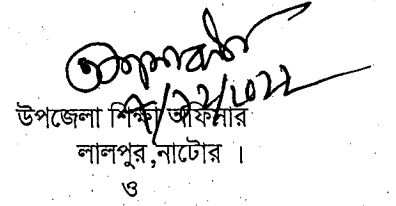 উপজেলা শিক্ষা অফিসার
লালপুর,নাটোর ।
ও